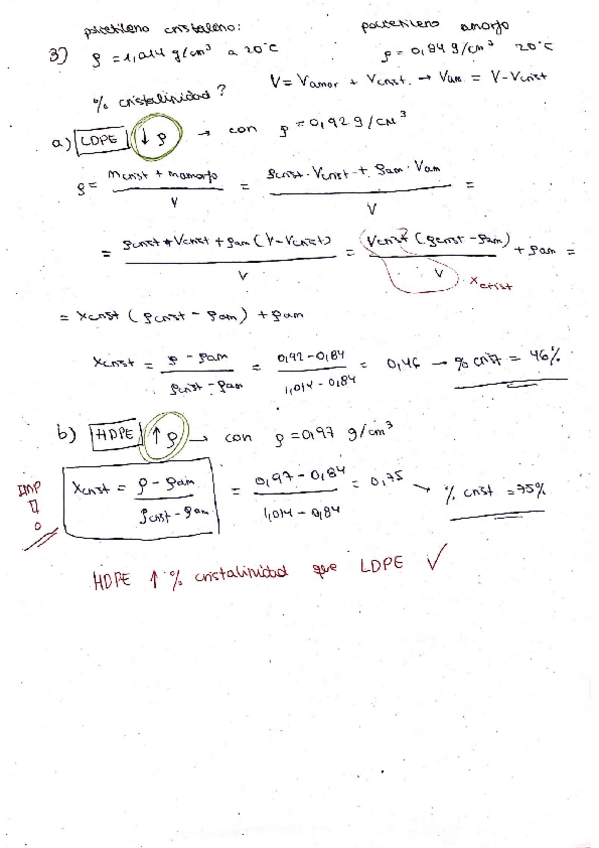 polietileno cristalino: polietileno amorfo
3) ρ = 1,014 g/cm³ a 20°C ρ = 0,84 g/cm³ 20°C
% cristalinidad? V = Vamor + Vcrist. → Vam = V - Vcrist
a) LDPE ↓ρ → con ρ = 0,92 g/cm³
ρ = (mcrist + mamorfo) / V = (ρcrist · Vcrist + ρam · Vam) / V =
= (ρcrist * Vcrist + ρam (V - Vcrist)) / V = (Vcrist (ρcrist - ρam)) / V + ρam =
xcrist
= Xcrist (ρcrist - ρam) + ρam
Xcrist = (ρ - ρam) / (ρcrist - ρam) = (0,92 - 0,84) / (1,014 - 0,84) = 0,46 → % crist = 46%
b) HDPE ↑ρ → con ρ = 0,97 g/cm³
IMP Xcrist = (ρ - ρam) / (ρcrist - ρam) = (0,97 - 0,84) / (1,014 - 0,84) = 0,75 → % crist = 75%
HDPE ↑ % cristalinidad que LDPE ✓